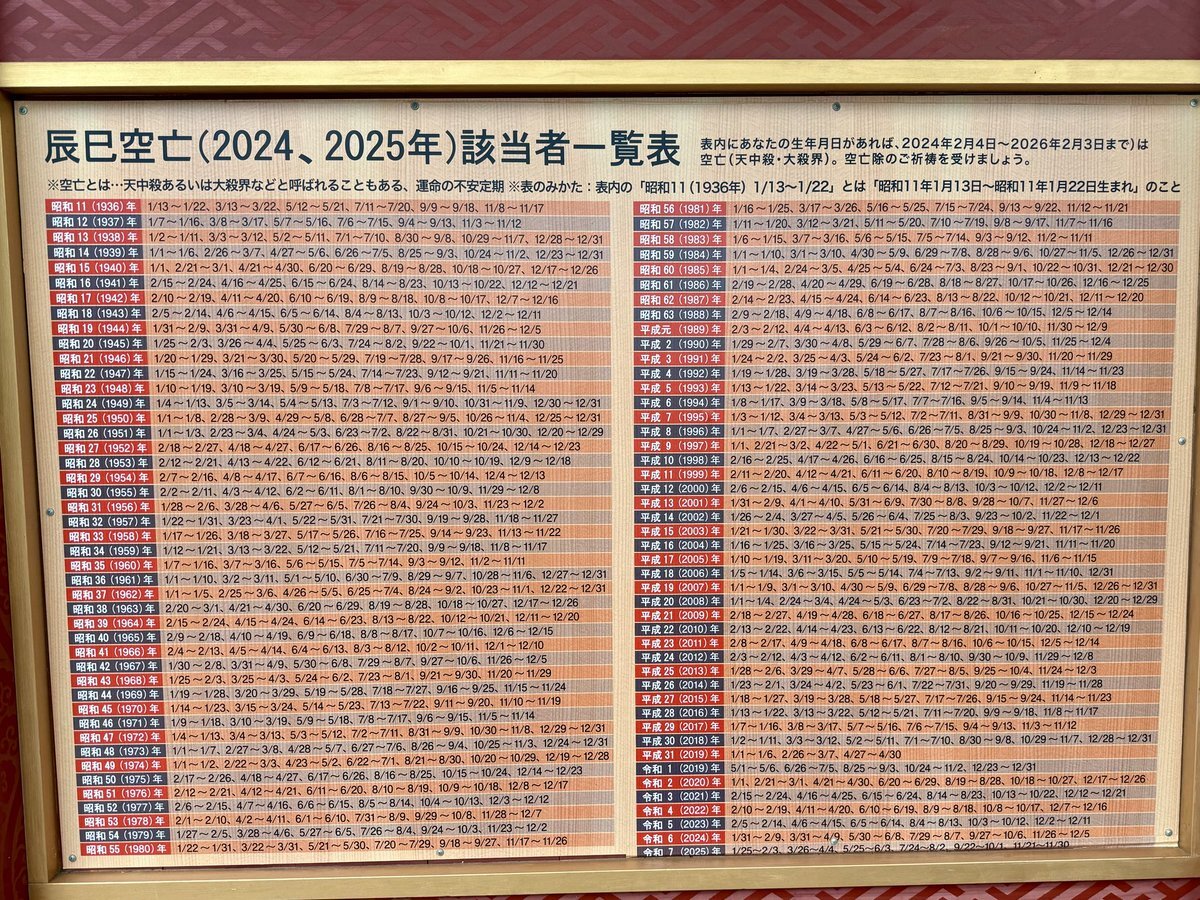 辰巳空亡(2024、2025年)該当者一覧表
表内にあなたの生年月日があれば、2024年2月4日～2026年2月3日まで)は
空亡(天中殺・大殺界)。空亡除のご祈祷を受けましょう。
※空亡とは…天中殺あるいは大殺界などと呼ばれることもある、運命の不安定期 ※表のみかた：表内の「昭和11(1936年) 1/13～1/22」とは「昭和11年1月13日～昭和11年1月22日生まれ」のこと
昭和 11 (1936) 年 1/13～1/22、3/13～3/22、5/12～5/21、7/11～7/20、9/9～9/18、11/8～11/17
昭和 12 (1937) 年 1/7～1/16、3/8～3/17、5/7～5/16、7/6～7/15、9/4～9/13、11/3～11/12
昭和 13 (1938) 年 1/2～1/11、3/3～3/12、5/2～5/11、7/1～7/10、8/30～9/8、10/29～11/7、12/28～12/31
昭和 14 (1939) 年 1/1～1/6、2/26～3/7、4/27～5/6、6/26～7/5、8/25～9/3、10/24～11/2、12/23～12/31
昭和 15 (1940) 年 1/1、2/21～3/1、4/21～4/30、6/20～6/29、8/19～8/28、10/18～10/27、12/17～12/26
昭和 16 (1941) 年 2/15～2/24、4/16～4/25、6/15～6/24、8/14～8/23、10/13～10/22、12/12～12/21
昭和 17 (1942) 年 2/10～2/19、4/11～4/20、6/10～6/19、8/9～8/18、10/8～10/17、12/7～12/16
昭和 18 (1943) 年 2/5～2/14、4/6～4/15、6/5～6/14、8/4～8/13、10/3～10/12、12/2～12/11
昭和 19 (1944) 年 1/31～2/9、3/31～4/9、5/30～6/8、7/29～8/7、9/27～10/6、11/26～12/5
昭和 20 (1945) 年 1/25～2/3、3/26～4/4、5/25～6/3、7/24～8/2、9/22～10/1、11/21～11/30
昭和 21 (1946) 年 1/20～1/29、3/21～3/30、5/20～5/29、7/19～7/28、9/17～9/26、11/16～11/25
昭和 22 (1947) 年 1/15～1/24、3/16～3/25、5/15～5/24、7/14～7/23、9/12～9/21、11/11～11/20
昭和 23 (1948) 年 1/10～1/19、3/10～3/19、5/9～5/18、7/8～7/17、9/6～9/15、11/5～11/14
昭和 24 (1949) 年 1/4～1/13、3/5～3/14、5/4～5/13、7/3～7/12、9/1～9/10、10/31～11/9、12/30～12/31
昭和 25 (1950) 年 1/1～1/8、2/28～3/9、4/29～5/8、6/28～7/7、8/27～9/5、10/26～11/4、12/25～12/31
昭和 26 (1951) 年 1/1～1/3、2/23～3/4、4/24～5/3、6/23～7/2、8/22～8/31、10/21～10/30、12/20～12/29
昭和 27 (1952) 年 2/18～2/27、4/18～4/27、6/17～6/26、8/16～8/25、10/15～10/24、12/14～12/23
昭和 28 (1953) 年 2/12～2/21、4/13～4/22、6/12～6/21、8/11～8/20、10/10～10/19、12/9～12/18
昭和 29 (1954) 年 2/7～2/16、4/8～4/17、6/7～6/16、8/6～8/15、10/5～10/14、12/4～12/13
昭和 30 (1955) 年 2/2～2/11、4/3～4/12、6/2～6/11、8/1～8/10、9/30～10/9、11/29～12/8
昭和 31 (1956) 年 1/28～2/6、3/28～4/6、5/27～6/5、7/26～8/4、9/24～10/3、11/23～12/2
昭和 32 (1957) 年 1/22～1/31、3/23～4/1、5/22～5/31、7/21～7/30、9/19～9/28、11/18～11/27
昭和 33 (1958) 年 1/17～1/26、3/18～3/27、5/17～5/26、7/16～7/25、9/14～9/23、11/13～11/22
昭和 34 (1959) 年 1/12～1/21、3/13～3/22、5/12～5/21、7/11～7/20、9/9～9/18、11/8～11/17
昭和 35 (1960) 年 1/7～1/16、3/7～3/16、5/6～5/15、7/5～7/14、9/3～9/12、11/2～11/11
昭和 36 (1961) 年 1/1～1/10、3/2～3/11、5/1～5/10、6/30～7/9、8/29～9/7、10/28～11/6、12/27～12/31
昭和 37 (1962) 年 1/1～1/5、2/25～3/6、4/26～5/5、6/25～7/4、8/24～9/2、10/23～11/1、12/22～12/31
昭和 38 (1963) 年 2/20～3/1、4/21～4/30、6/20～6/29、8/19～8/28、10/18～10/27、12/17～12/26
昭和 39 (1964) 年 2/15～2/24、4/15～4/24、6/14～6/23、8/13～8/22、10/12～10/21、12/11～12/20
昭和 40 (1965) 年 2/9～2/18、4/10～4/19、6/9～6/18、8/8～8/17、10/7～10/16、12/6～12/15
昭和 41 (1966) 年 2/4～2/13、4/5～4/14、6/4～6/13、8/3～8/12、10/2～10/11、12/1～12/10
昭和 42 (1967) 年 1/30～2/8、3/31～4/9、5/30～6/8、7/29～8/7、9/27～10/6、11/26～12/5
昭和 43 (1968) 年 1/25～2/3、3/25～4/3、5/24～6/2、7/23～8/1、9/21～9/30、11/20～11/29
昭和 44 (1969) 年 1/19～1/28、3/20～3/29、5/19～5/28、7/18～7/27、9/16～9/25、11/15～11/24
昭和 45 (1970) 年 1/14～1/23、3/15～3/24、5/14～5/23、7/13～7/22、9/11～9/20、11/10～11/19
昭和 46 (1971) 年 1/9～1/18、3/10～3/19、5/9～5/18、7/8～7/17、9/6～9/15、11/5～11/14
昭和 47 (1972) 年 1/4～1/13、3/4～3/13、5/3～5/12、7/2～7/11、8/31～9/9、10/30～11/8、12/29～12/31
昭和 48 (1973) 年 1/1～1/7、2/27～3/8、4/28～5/7、6/27～7/6、8/26～9/4、10/25～11/3、12/24～12/31
昭和 49 (1974) 年 1/1～1/2、2/22～3/3、4/23～5/2、6/22～7/1、8/21～8/30、10/20～10/29、12/19～12/28
昭和 50 (1975) 年 2/17～2/26、4/18～4/27、6/17～6/26、8/16～8/25、10/15～10/24、12/14～12/23
昭和 51 (1976) 年 2/12～2/21、4/12～4/21、6/11～6/20、8/10～8/19、10/9～10/18、12/8～12/17
昭和 52 (1977) 年 2/6～2/15、4/7～4/16、6/6～6/15、8/5～8/14、10/4～10/13、12/3～12/12
昭和 53 (1978) 年 2/1～2/10、4/2～4/11、6/1～6/10、7/31～8/9、9/29～10/8、11/28～12/7
昭和 54 (1979) 年 1/27～2/5、3/28～4/6、5/27～6/5、7/26～8/4、9/24～10/3、11/23～12/2
昭和 55 (1980) 年 1/22～1/31、3/22～3/31、5/21～5/30、7/20～7/29、9/18～9/27、11/17～11/26
昭和 56 (1981) 年 1/16～1/25、3/17～3/26、5/16～5/25、7/15～7/24、9/13～9/22、11/12～11/21
昭和 57 (1982) 年 1/11～1/20、3/12～3/21、5/11～5/20、7/10～7/19、9/8～9/17、11/7～11/16
昭和 58 (1983) 年 1/6～1/15、3/7～3/16、5/6～5/15、7/5～7/14、9/3～9/12、11/2～11/11
昭和 59 (1984) 年 1/1～1/10、3/1～3/10、4/30～5/9、6/29～7/8、8/28～9/6、10/27～11/5、12/26～12/31
昭和 60 (1985) 年 1/1～1/4、2/24～3/5、4/25～5/4、6/24～7/3、8/23～9/1、10/22～10/31、12/21～12/30
昭和 61 (1986) 年 2/19～2/28、4/20～4/29、6/19～6/28、8/18～8/27、10/17～10/26、12/16～12/25
昭和 62 (1987) 年 2/14～2/23、4/15～4/24、6/14～6/23、8/13～8/22、10/12～10/21、12/11～12/20
昭和 63 (1988) 年 2/9～2/18、4/9～4/18、6/8～6/17、8/7～8/16、10/6～10/15、12/5～12/14
平成元 (1989) 年 2/3～2/12、4/4～4/13、6/3～6/12、8/2～8/11、10/1～10/10、11/30～12/9
平成 2 (1990) 年 1/29～2/7、3/30～4/8、5/29～6/7、7/28～8/6、9/26～10/5、11/25～12/4
平成 3 (1991) 年 1/24～2/2、3/25～4/3、5/24～6/2、7/23～8/1、9/21～9/30、11/20～11/29
平成 4 (1992) 年 1/19～1/28、3/19～3/28、5/18～5/27、7/17～7/26、9/15～9/24、11/14～11/23
平成 5 (1993) 年 1/13～1/22、3/14～3/23、5/13～5/22、7/12～7/21、9/10～9/19、11/9～11/18
平成 6 (1994) 年 1/8～1/17、3/9～3/18、5/8～5/17、7/7～7/16、9/5～9/14、11/4～11/13
平成 7 (1995) 年 1/3～1/12、3/4～3/13、5/3～5/12、7/2～7/11、8/31～9/9、10/30～11/8、12/29～12/31
平成 8 (1996) 年 1/1～1/7、2/27～3/7、4/27～5/6、6/26～7/5、8/25～9/3、10/24～11/2、12/23～12/31
平成 9 (1997) 年 1/1、2/21～3/2、4/22～5/1、6/21～6/30、8/20～8/29、10/19～10/28、12/18～12/27
平成 10 (1998) 年 2/16～2/25、4/17～4/26、6/16～6/25、8/15～8/24、10/14～10/23、12/13～12/22
平成 11 (1999) 年 2/11～2/20、4/12～4/21、6/11～6/20、8/10～8/19、10/9～10/18、12/8～12/17
平成 12 (2000) 年 2/6～2/15、4/6～4/15、6/5～6/14、8/4～8/13、10/3～10/12、12/2～12/11
平成 13 (2001) 年 1/31～2/9、4/1～4/10、5/31～6/9、7/30～8/8、9/28～10/7、11/27～12/6
平成 14 (2002) 年 1/26～2/4、3/27～4/5、5/26～6/4、7/25～8/3、9/23～10/2、11/22～12/1
平成 15 (2003) 年 1/21～1/30、3/22～3/31、5/21～5/30、7/20～7/29、9/18～9/27、11/17～11/26
平成 16 (2004) 年 1/16～1/25、3/16～3/25、5/15～5/24、7/14～7/23、9/12～9/21、11/11～11/20
平成 17 (2005) 年 1/10～1/19、3/11～3/20、5/10～5/19、7/9～7/18、9/7～9/16、11/6～11/15
平成 18 (2006) 年 1/5～1/14、3/6～3/15、5/5～5/14、7/4～7/13、9/2～9/11、11/1～11/10、12/31
平成 19 (2007) 年 1/1～1/9、3/1～3/10、4/30～5/9、6/29～7/8、8/28～9/6、10/27～11/5、12/26～12/31
平成 20 (2008) 年 1/1～1/4、2/24～3/4、4/24～5/3、6/23～7/2、8/22～8/31、10/21～10/30、12/20～12/29
平成 21 (2009) 年 2/18～2/27、4/19～4/28、6/18～6/27、8/17～8/26、10/16～10/25、12/15～12/24
平成 22 (2010) 年 2/13～2/22、4/14～4/23、6/13～6/22、8/12～8/21、10/11～10/20、12/10～12/19
平成 23 (2011) 年 2/8～2/17、4/9～4/18、6/8～6/17、8/7～8/16、10/6～10/15、12/5～12/14
平成 24 (2012) 年 2/3～2/12、4/3～4/12、6/2～6/11、8/1～8/10、9/30～10/9、11/29～12/8
平成 25 (2013) 年 1/28～2/6、3/29～4/7、5/28～6/6、7/27～8/5、9/25～10/4、11/24～12/3
平成 26 (2014) 年 1/23～2/1、3/24～4/2、5/23～6/1、7/22～7/31、9/20～9/29、11/19～11/28
平成 27 (2015) 年 1/18～1/27、3/19～3/28、5/18～5/27、7/17～7/26、9/15～9/24、11/14～11/23
平成 28 (2016) 年 1/13～1/22、3/13～3/22、5/12～5/21、7/11～7/20、9/9～9/18、11/8～11/17
平成 29 (2017) 年 1/7～1/16、3/8～3/17、5/7～5/16、7/6～7/15、9/4～9/13、11/3～11/12
平成 30 (2018) 年 1/2～1/11、3/3～3/12、5/2～5/11、7/1～7/10、8/30～9/8、10/29～11/7、12/28～12/31
平成 31 (2019) 年 1/1～1/6、2/26～3/7、4/27～4/30
令和 1 (2019) 年 5/1～5/6、6/26～7/5、8/25～9/3、10/24～11/2、12/23～12/31
令和 2 (2020) 年 1/1、2/21～3/1、4/21～4/30、6/20～6/29、8/19～8/28、10/18～10/27、12/17～12/26
令和 3 (2021) 年 2/15～2/24、4/16～4/25、6/15～6/24、8/14～8/23、10/13～10/22、12/12～12/21
令和 4 (2022) 年 2/10～2/19、4/11～4/20、6/10～6/19、8/9～8/18、10/8～10/17、12/7～12/16
令和 5 (2023) 年 2/5～2/14、4/6～4/15、6/5～6/14、8/4～8/13、10/3～10/12、12/2～12/11
令和 6 (2024) 年 1/31～2/9、3/31～4/9、5/30～6/8、7/29～8/7、9/27～10/6、11/26～12/5
令和 7 (2025) 年 1/25～2/3、3/26～4/4、5/25～6/3、7/24～8/2、9/22～10/1、11/21～11/30